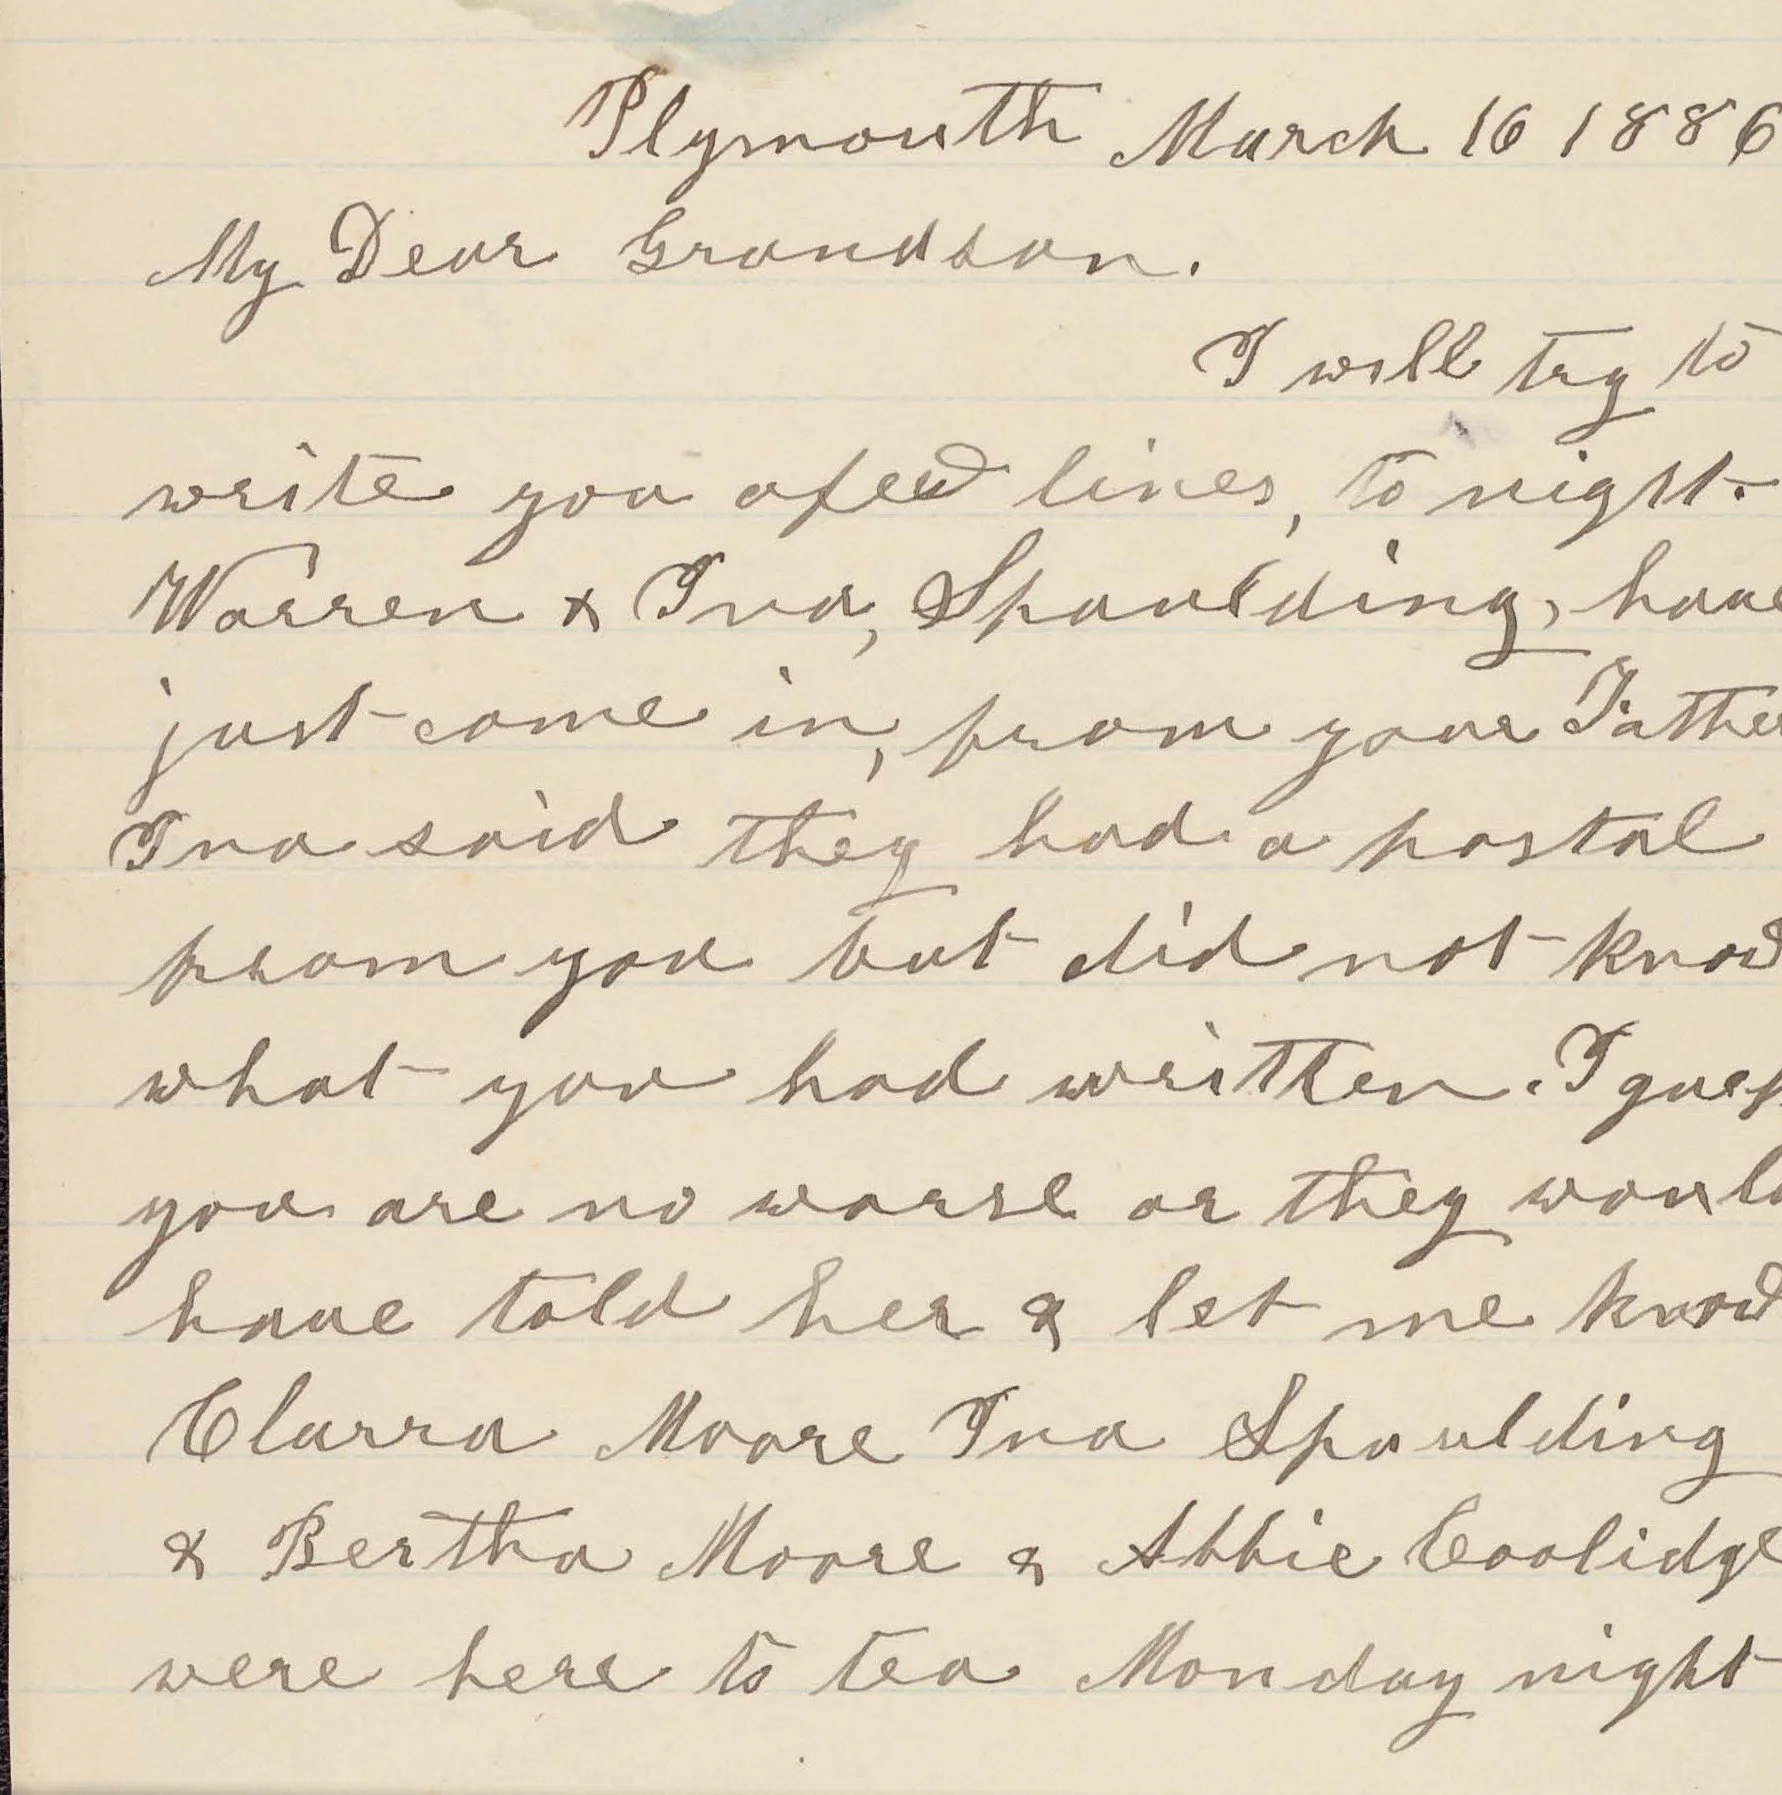 Plymouth March 16 1886
My Dear Grandson.
I will try to
write you a few lines, to night.
Warren & Ina, Spaulding, have
just come in, from your Father
Ina said they had a postal
from you but did not know
what you had written. I guess
you are no worse or they would
have told her & let me know
Clarra Moore Ina Spaulding
& Bertha Moore & Abbie Coolidge
were here to tea Monday night